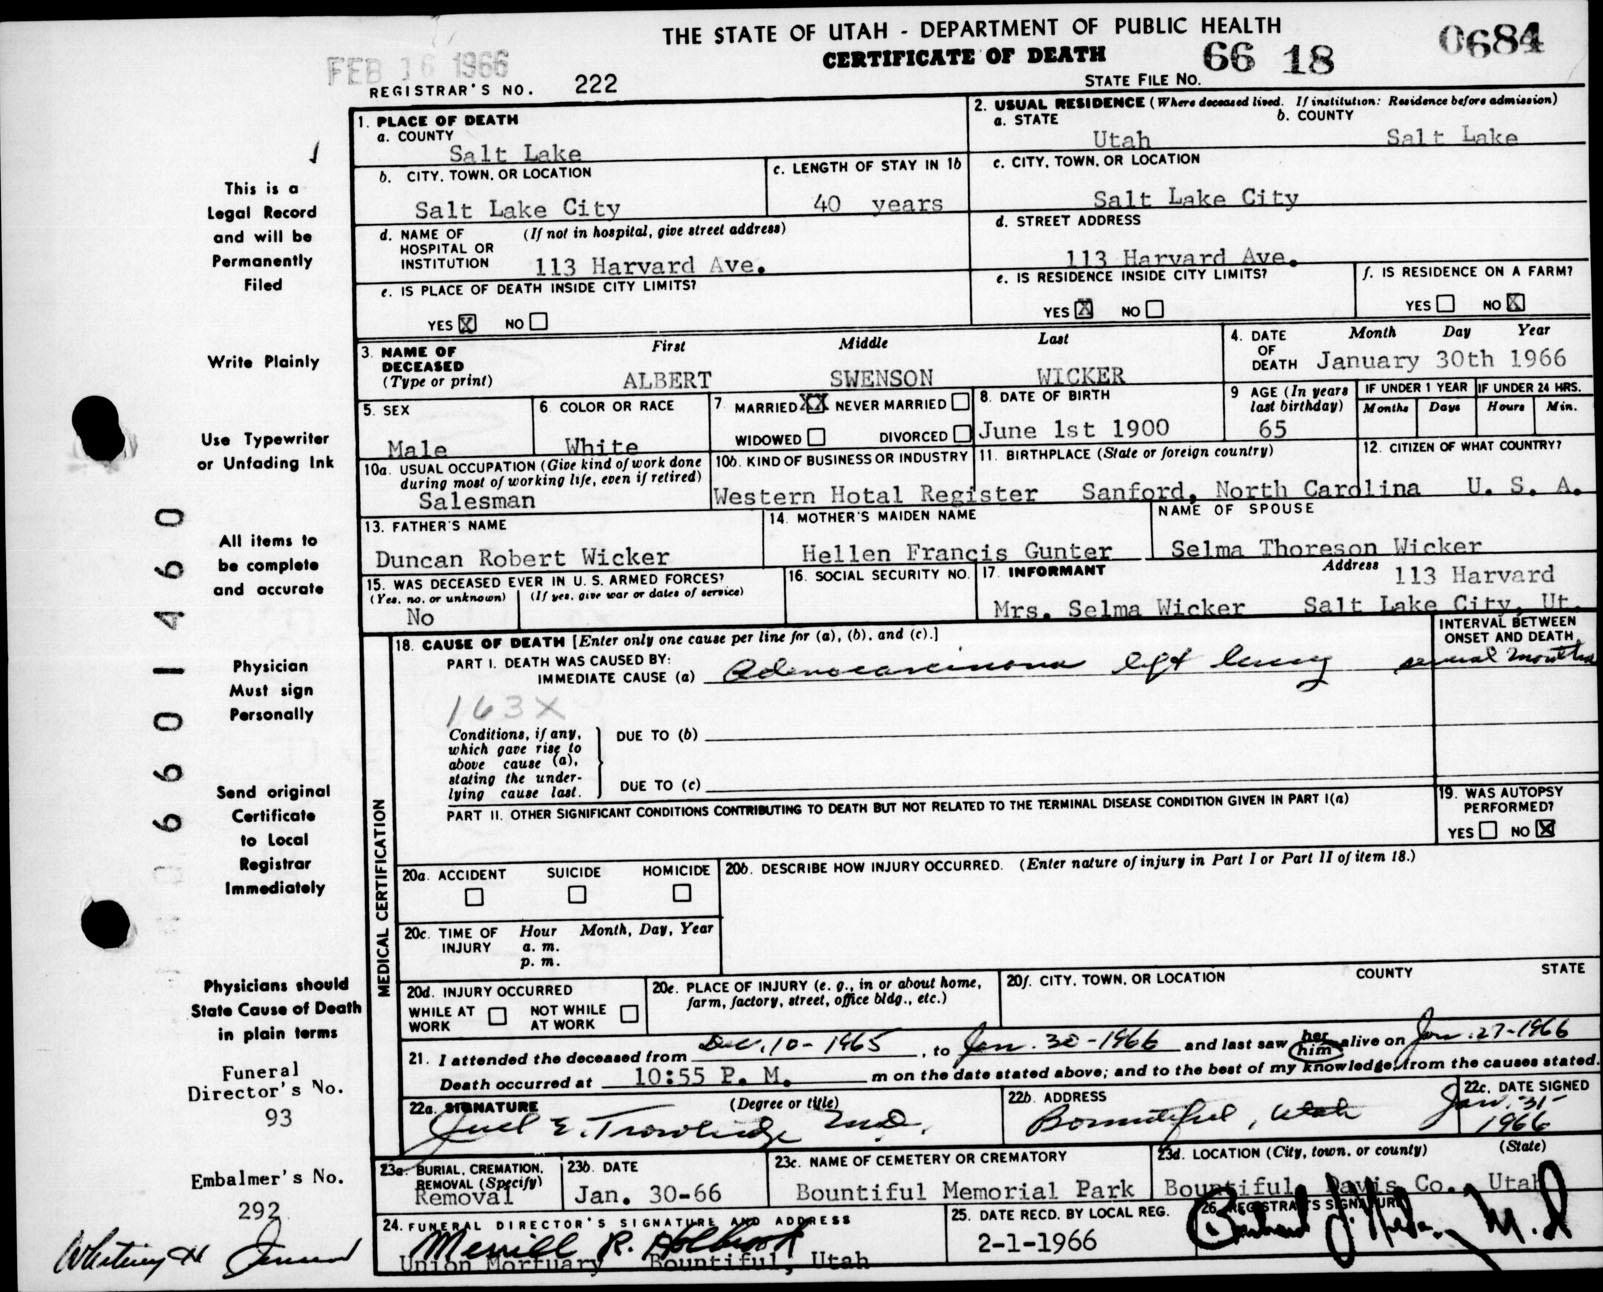 THE STATE OF UTAH - DEPARTMENT OF PUBLIC HEALTH
CERTIFICATE OF DEATH
FEB 16 1966
REGISTRAR'S NO. 222
STATE FILE NO. 66 18 0684
1. PLACE OF DEATH
a. COUNTY
Salt Lake
2. USUAL RESIDENCE (Where deceased lived. If institution: Residence before admission)
a. STATE b. COUNTY
Utah Salt Lake
b. CITY, TOWN, OR LOCATION
Salt Lake City
c. LENGTH OF STAY IN 1b
40 years
c. CITY, TOWN, OR LOCATION
Salt Lake City
d. NAME OF HOSPITAL OR INSTITUTION (If not in hospital, give street address)
113 Harvard Ave.
d. STREET ADDRESS
113 Harvard Ave.
e. IS PLACE OF DEATH INSIDE CITY LIMITS?
YES X NO
e. IS RESIDENCE INSIDE CITY LIMITS?
YES X NO
f. IS RESIDENCE ON A FARM?
YES NO X
3. NAME OF DECEASED (Type or print)
First Middle Last
ALBERT SWENSON WICKER
4. DATE OF DEATH Month Day Year
January 30th 1966
5. SEX
Male
6. COLOR OR RACE
White
7. MARRIED XX NEVER MARRIED
WIDOWED DIVORCED
8. DATE OF BIRTH
June 1st 1900
9 AGE (In years last birthday)
65
IF UNDER 1 YEAR IF UNDER 24 HRS.
Months Days Hours Min.
10a. USUAL OCCUPATION (Give kind of work done during most of working life, even if retired)
Salesman
10b. KIND OF BUSINESS OR INDUSTRY
Western Hotal Register
11. BIRTHPLACE (State or foreign country)
Sanford, North Carolina
12. CITIZEN OF WHAT COUNTRY?
U. S. A.
13. FATHER'S NAME
Duncan Robert Wicker
14. MOTHER'S MAIDEN NAME
Hellen Francis Gunter
NAME OF SPOUSE
Selma Thoreson Wicker
15. WAS DECEASED EVER IN U. S. ARMED FORCES?
(Yes, no, or unknown) (If yes, give war or dates of service)
No
16. SOCIAL SECURITY NO.
17. INFORMANT Address
113 Harvard
Mrs. Selma Wicker Salt Lake City, Ut.
MEDICAL CERTIFICATION
18. CAUSE OF DEATH [Enter only one cause per line for (a), (b), and (c).]
INTERVAL BETWEEN ONSET AND DEATH
PART I. DEATH WAS CAUSED BY:
IMMEDIATE CAUSE (a) Adenocarcinoma left lung several months
163X
Conditions, if any, which gave rise to above cause (a), stating the underlying cause last.
DUE TO (b)
DUE TO (c)
PART II. OTHER SIGNIFICANT CONDITIONS CONTRIBUTING TO DEATH BUT NOT RELATED TO THE TERMINAL DISEASE CONDITION GIVEN IN PART I(a)
19. WAS AUTOPSY PERFORMED?
YES NO X
20a. ACCIDENT SUICIDE HOMICIDE
20b. DESCRIBE HOW INJURY OCCURRED. (Enter nature of injury in Part I or Part II of item 18.)
20c. TIME OF INJURY Hour Month, Day, Year
a. m.
p. m.
20d. INJURY OCCURRED
WHILE AT WORK NOT WHILE AT WORK
20e. PLACE OF INJURY (e. g., in or about home, farm, factory, street, office bldg., etc.)
20f. CITY, TOWN, OR LOCATION COUNTY STATE
21. I attended the deceased from Dec. 10-1965, to Jan. 30-1966 and last saw her him alive on Jan. 27-1966
Death occurred at 10:55 P. M. m on the date stated above; and to the best of my knowledge, from the causes stated.
22a. SIGNATURE (Degree or title)
E. Trowbridge M.D.
22b. ADDRESS
Bountiful, Utah
22c. DATE SIGNED
Jan. 31-1966
23a. BURIAL, CREMATION, REMOVAL (Specify)
Removal
23b. DATE
Jan. 30-66
23c. NAME OF CEMETERY OR CREMATORY
Bountiful Memorial Park
23d. LOCATION (City, town, or county) (State)
Bountiful, Davis Co. Utah
24. FUNERAL DIRECTOR'S SIGNATURE AND ADDRESS
Merrill R. Holbrook
Union Mortuary Bountiful, Utah
25. DATE RECD. BY LOCAL REG.
2-1-1966
26. REGISTRAR'S SIGNATURE
M.D
This is a
Legal Record
and will be
Permanently
Filed
Write Plainly
Use Typewriter
or Unfading Ink
All items to
be complete
and accurate
Physician
Must sign
Personally
Send original
Certificate
to Local
Registrar
Immediately
Physicians should
State Cause of Death
in plain terms
Funeral
Director's No.
93
Embalmer's No.
292
Whitney H
6601460